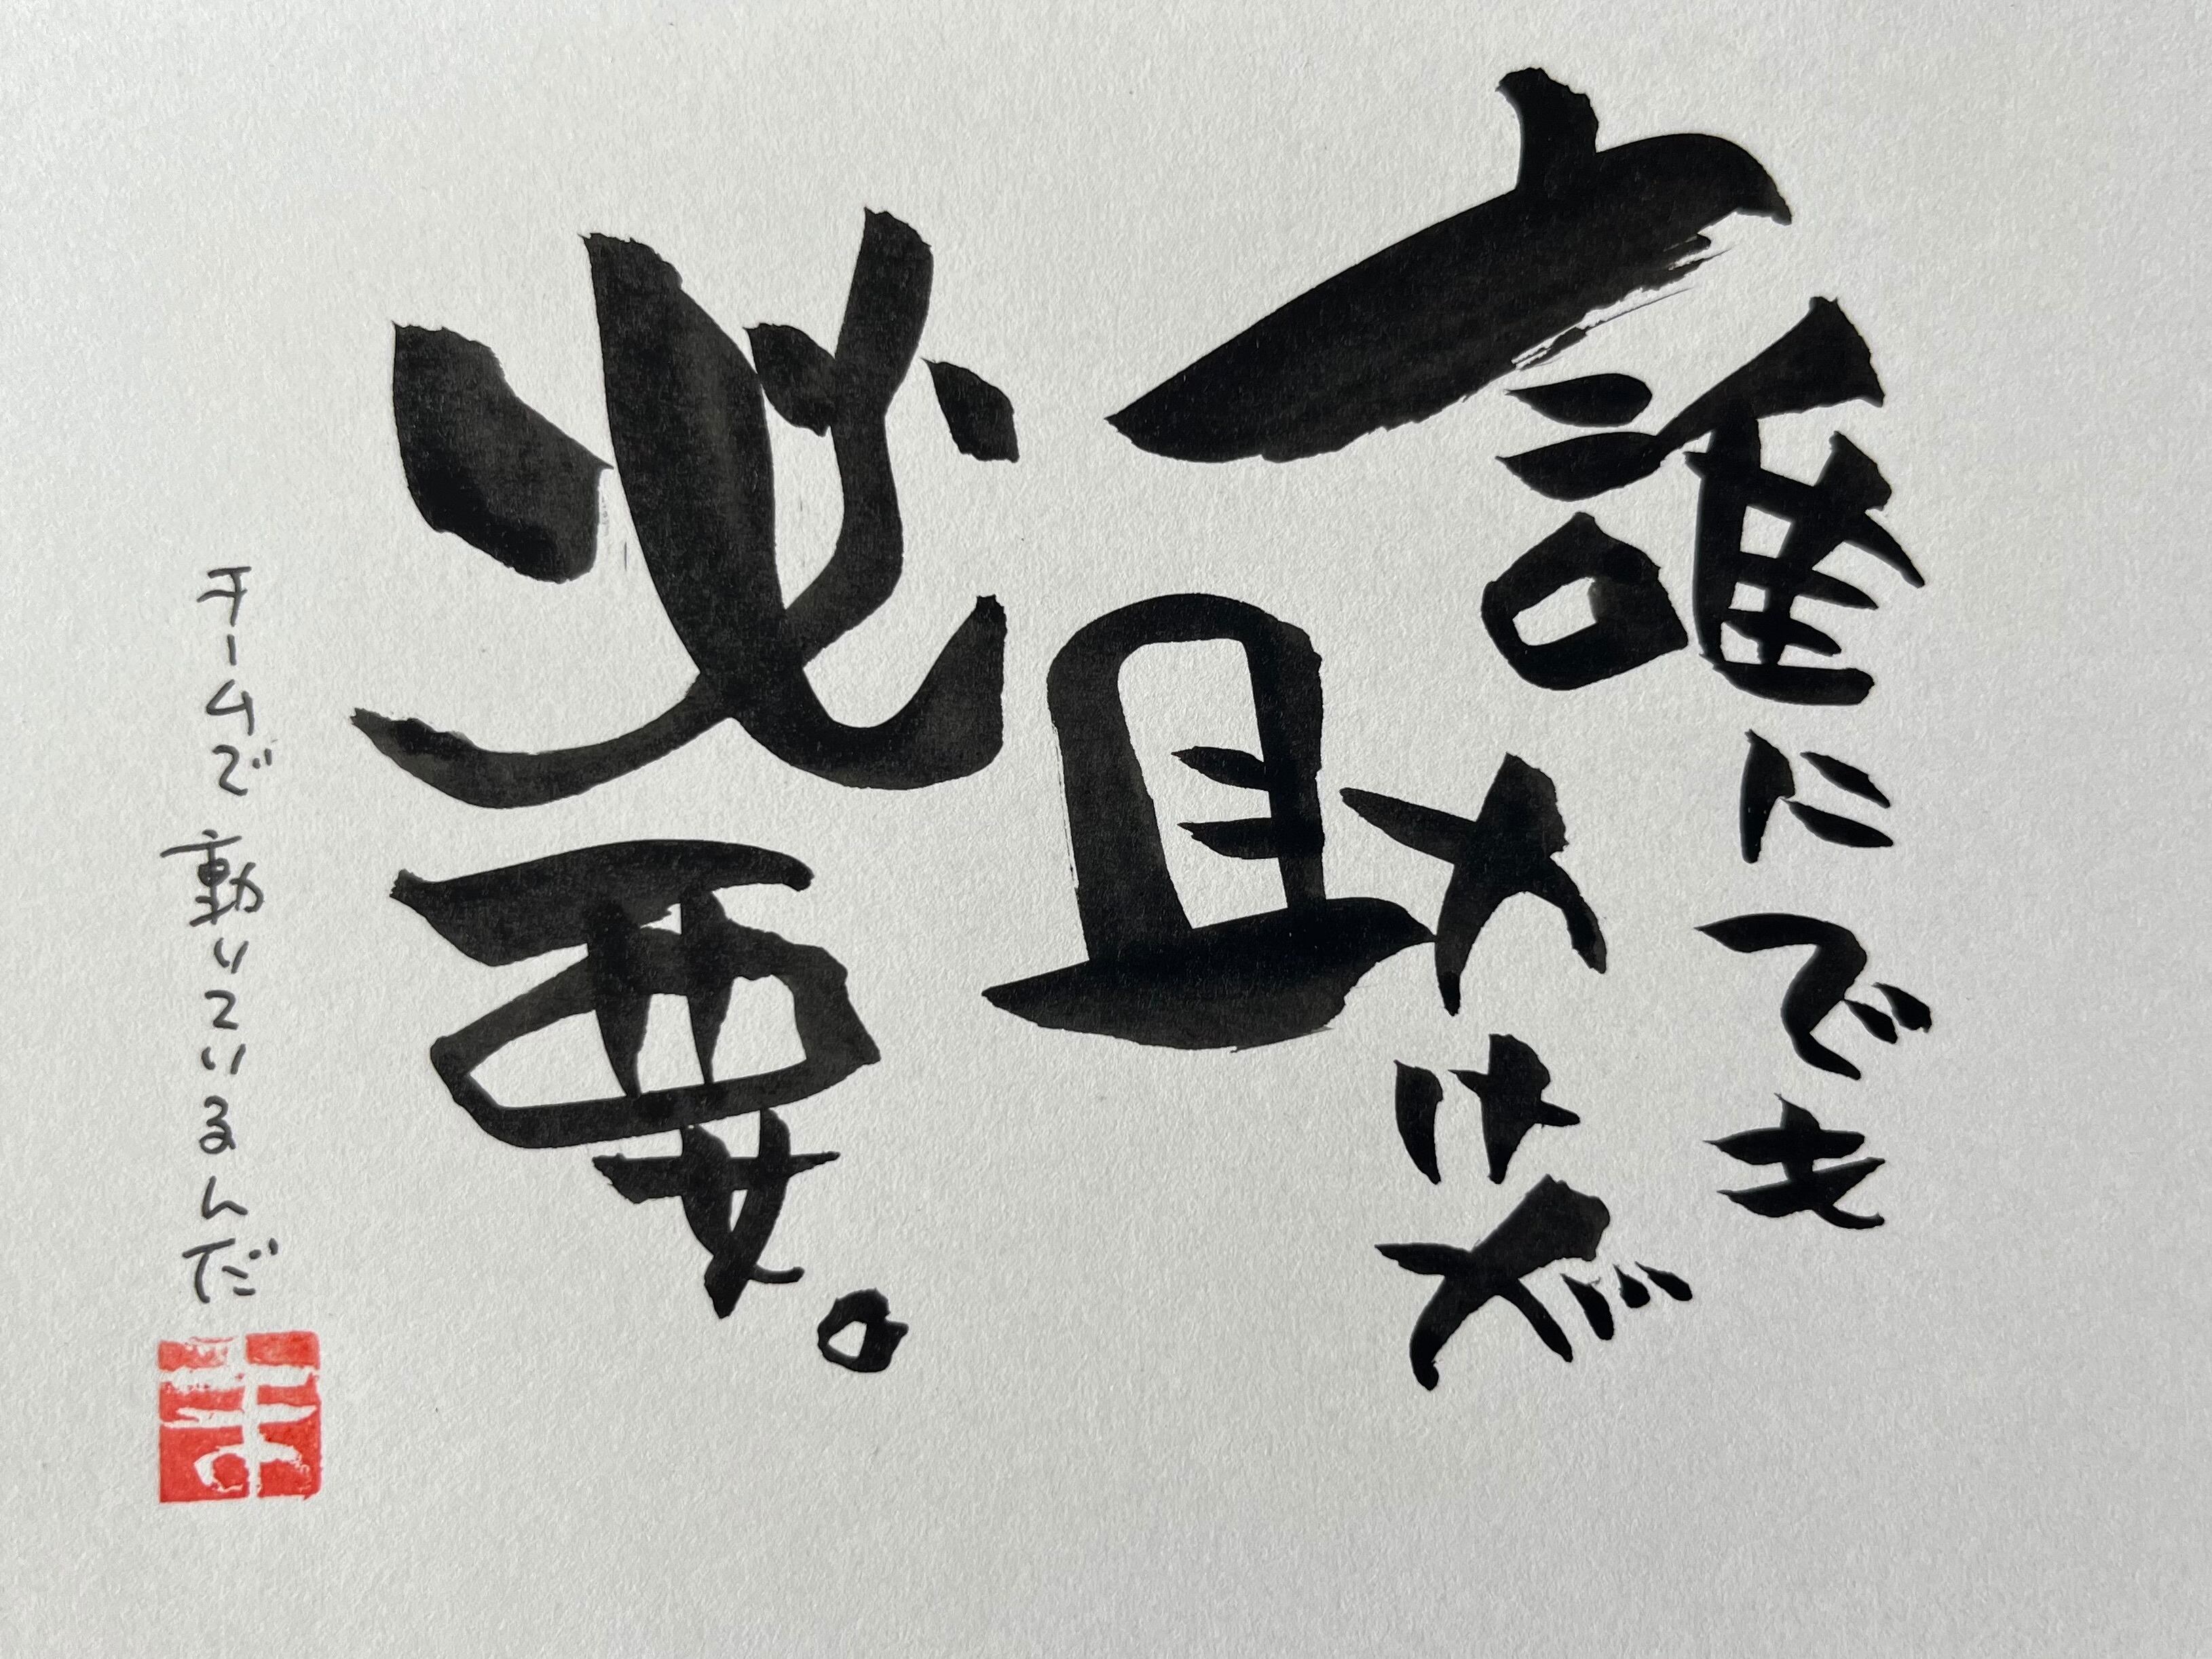 誰にでも
助けが
必要。
チームで動いているんだ